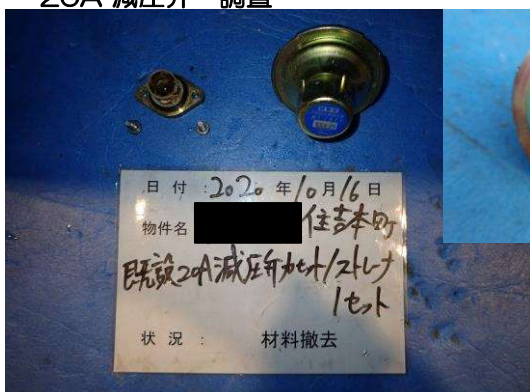 20A 減圧弁 調査
日付:2020年10月16日
物件名 住吉本町
既設20A減圧弁カセット/ストレーナ
1セット
状況: 材料撤去